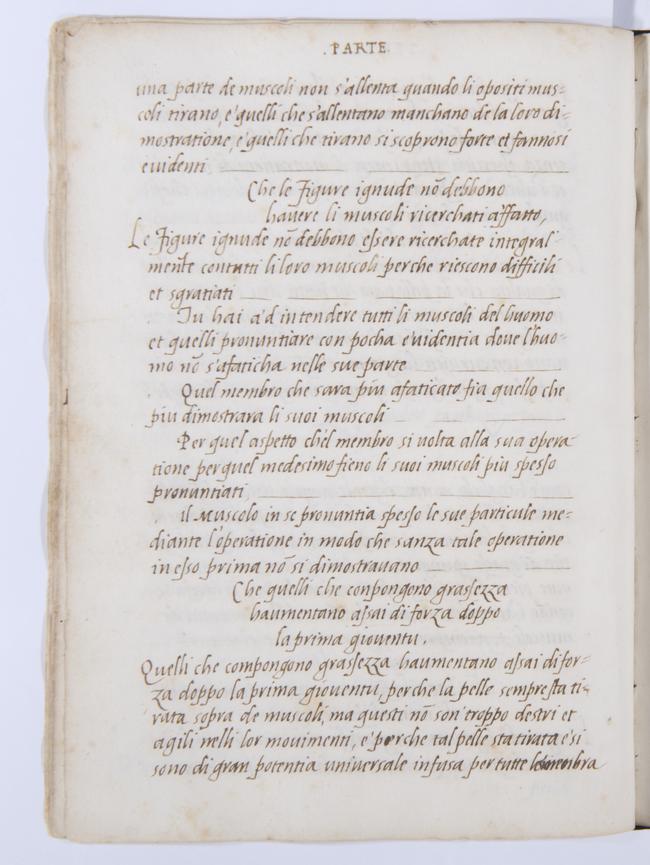 . PARTE.
una parte de muscoli non s'allenta quando li opositi mus=
coli tirano, e' quelli che s'allentano manchano de la loro di=
mostratione, e' quelli che tirano si scoprono forte et fannosi
evidenti
Che le Figure ignude nō debbono
havere li muscoli ricerchati affatto,
Le Figure ignude nō debbono essere ricerchate integral'=
mente con tutti li loro muscoli perche riescono difficili
et sgratiati
. Tu hai ad intendere tutti li muscoli del huomo
et quelli pronuntiare con pocha evidentia dove l'huo=
mo nō s'afaticha nelle sue parte
. Quel membro che sara piu afaticato fia quello che
piu dimostrara li suoi muscoli
. Per quel aspetto ch'el membro si volta alla sua opera
tione per quel medesimo fieno li suoi muscoli piu spesso
pronuntiati
. il Muscolo in se pronuntia spesso le sue particule me=
diante l'operatione in modo che sanza tale operatione
in esso prima nō si dimostravano
Che quelli che conpongono grassezza
haumentano assai di forza doppo
la prima gioventu.
Quelli che compongono grassezza haumentano assai di for=
za doppo la prima gioventu, perche la pelle sempre sta ti=
rata sopra de muscoli, ma questi nō son' troppo destri et
agili nelli lor movimenti, e' perche tal pelle sta tirata e' si
sono di gran potentia universale infusa per tutte le membra